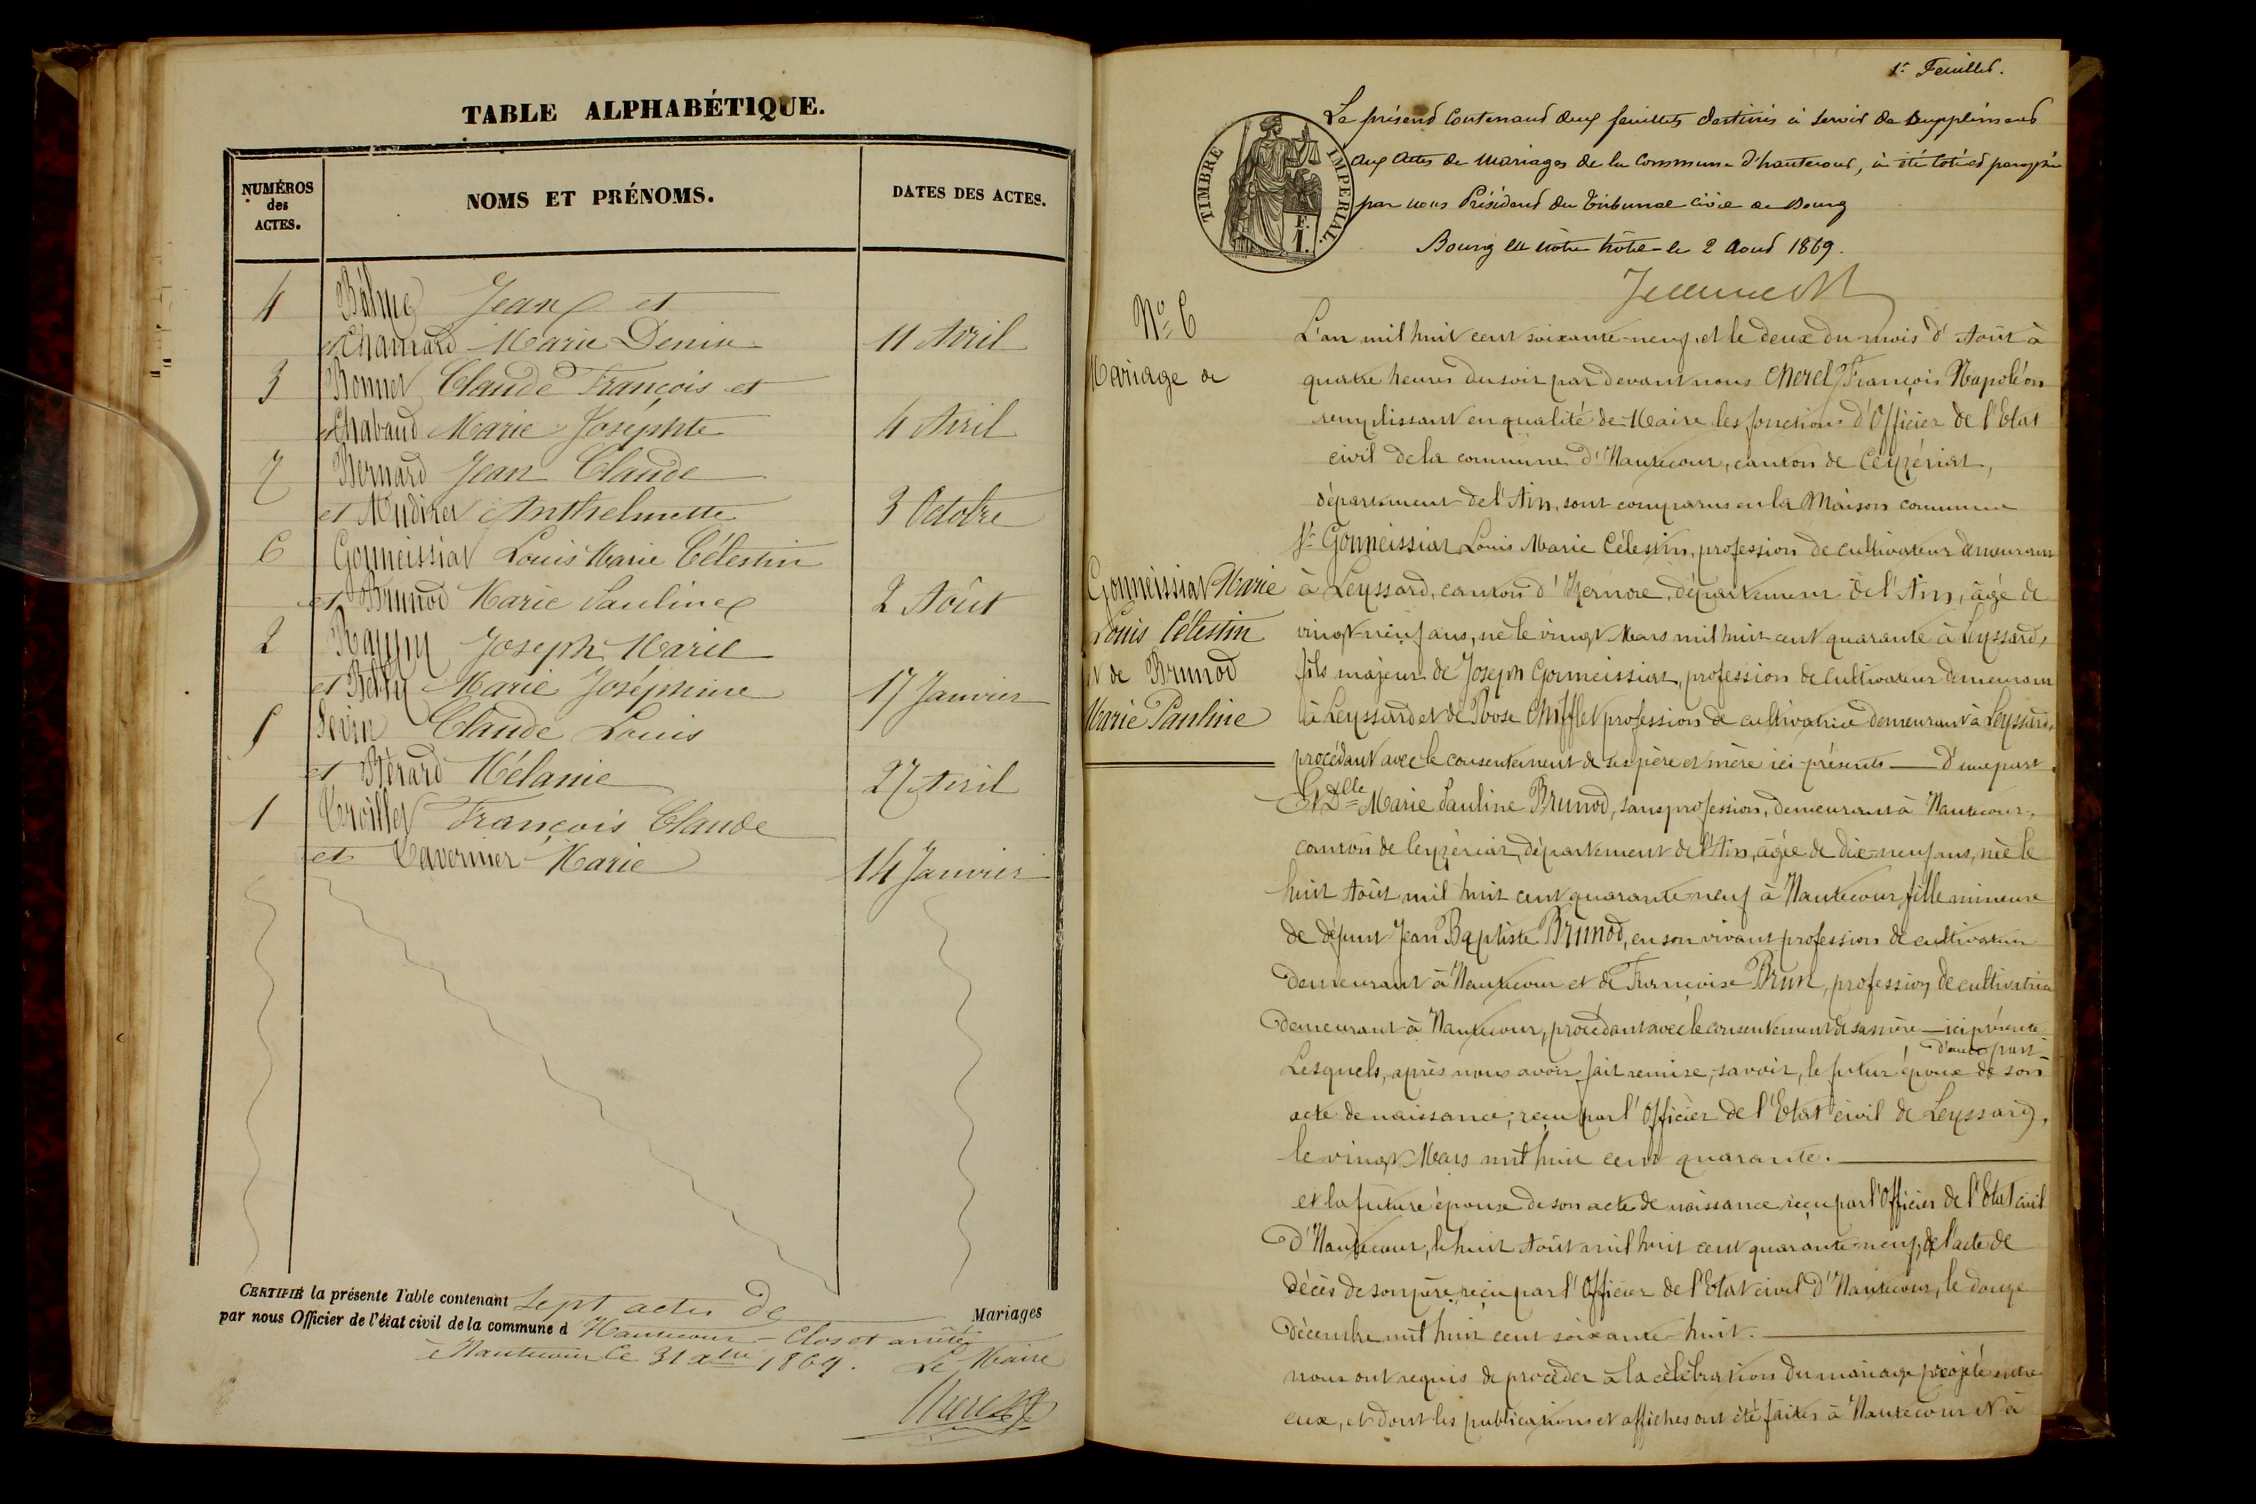 TABLE ALPHABÉTIQUE.
NUMÉROS
des
ACTES.
NOMS ET PRÉNOMS.
DATES DES ACTES.
4 Jean et
et Chanard Marie Denise 11 Avril
3 Bonnet Claude François et
et Chabaud Marie Joséphte 4 Avril
7 Bernard Jean Claude
et Anthelmette 3 Octobre
6 Gonneissiat Louis Marie Célestin
et Brunod Marie Pauline 2 Août
2 Joseph Marie
et Marie Joséphine 17 Janvier
5 Claude Louis
et Bérard Mélanie 27 Avril
1 François Claude
et Tavernier Marie 14 Janvier
CERTIFIÉ la présente Table contenant Sept actes de Mariages
par nous Officier de l'état civil de la commune d Hautecour - Clos et arrêté
à Hautecour le 31 Xbre 1869. Le Maire
1r Feuillet.
TIMBRE IMPERIAL.
Le présent contenant deux feuillets destinés à servir de supplément
aux actes de Mariages de la Commune d'hautecour, à été coté et paraphé
par nous Président du Tribunal Civil de Bourg
Bourg en nôtre hôtel le 2 Aout 1869.
No 6
Mariage de
Gonneissiat Marie
Louis Célestin
et de Brunod
Marie Pauline
L'an mil huit cent soixante-neuf, et le deux du mois d'Août à
quatre heures du soir par devant nous Cherel François Napoléon
remplissant en qualité de Maire les fonctions d'Officier de l'Etat
civil de la commune d'Hautecour, canton de Ceyzériat,
département de l'Ain, sont comparus en la Maison commune
Sr Gonneissiat Louis Marie Célestin, profession de cultivateur demeurant
à Leyssard, canton d'Izernore, département de l'Ain, âgé de
vingt-neuf ans, né le vingt Mars mil huit cent quarante à Leyssard,
fils majeur de Joseph Gonneissiat, profession de cultivateur demeurant
à Leyssard et de Rose Chifflet profession de cultivatrice demeurant à Leyssard,
procédant avec le consentement de ses père et mère ici présents — d'une part.
Et Dlle Marie Pauline Brunod, sans profession, demeurant à Hautecour,
canton de Ceyzériat, département de l'Ain, âgée de dix-neuf ans, née le
huit Août mil huit cent quarante-neuf à Hautecour, fille mineure
de défunt Jean Baptiste Brunod, en son vivant profession de cultivateur
demeurant à Hautecour et de Françoise Brun, profession de cultivatrice
demeurant à Hautecour, procédant avec le consentement de sa mère — ici présente
d'autre part
Lesquels, après nous avoir fait remise, savoir, le futur époux de son
acte de naissance, reçu par l'Officier de l'Etat civil de Leyssard,
le vingt Mars mil huit cent quarante.
et la future épouse de son acte de naissance reçu par l'Officier de l'Etat civil
d'Hautecour, le huit Août mil huit cent quarante-neuf, de l'acte de
décès de son père, reçu par l'Officier de l'Etat civil d'Hautecour, le douze
décembre mil huit cent soixante-huit.
nous ont requis de procéder à la célébration du mariage projeté entre
eux, et dont les publications et affiches ont été faites à Hautecour et à